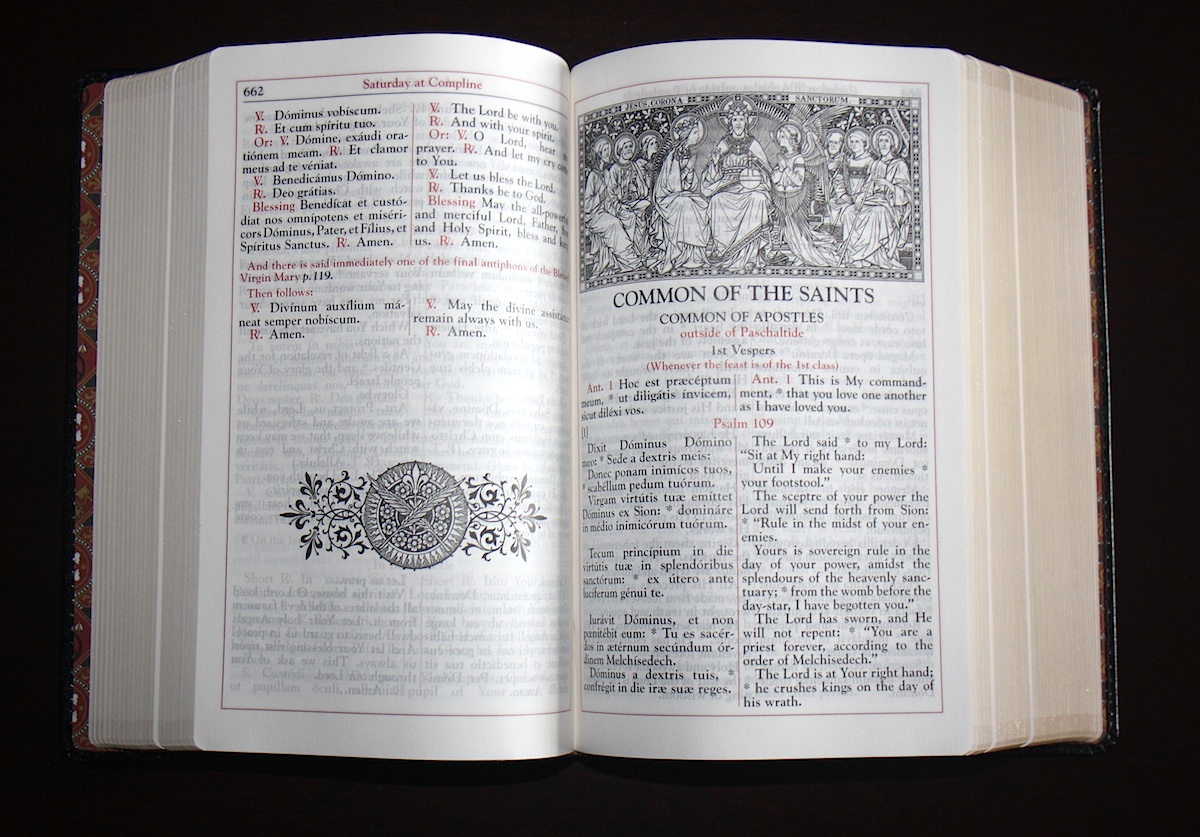 662
Saturday at Compline
℣. Dóminus vobíscum.
℟. Et cum spíritu tuo.
Or: ℣. Dómine, exáudi ora-
tiónem meam. ℟. Et clamor
meus ad te véniat.
℣. Benedicámus Dómino.
℟. Deo grátias.
Blessing Benedícat et custó-
diat nos omnípotens et miséri-
cors Dóminus, Pater, et Fílius, et
Spíritus Sanctus. ℟. Amen.
℣. The Lord be with you.
℟. And with your spirit.
Or: ℣. O Lord, hear
prayer. ℟. And let my cry
to You.
℣. Let us bless the Lord.
℟. Thanks be to God.
Blessing May the
and merciful Lord, Father,
and Holy Spirit, bless and
us. ℟. Amen.
And there is said immediately one of the final antiphons of the
Virgin Mary p. 119.
Then follows:
℣. Divínum auxílium má-
neat semper nobíscum.
℟. Amen.
℣. May the divine
remain always with us.
℟. Amen.
JESUS, CORONA SANCTORUM
COMMON OF THE SAINTS
COMMON OF APOSTLES
outside of Paschaltide
1st Vespers
(Whenever the feast is of the 1st class)
Ant. 1 Hoc est præcéptum
meum, * ut diligátis ínvicem,
sicut diléxi vos.
Ant. 1 This is My command-
ment, * that you love one another
as I have loved you.
Psalm 109
[1]
Dixit Dóminus Dómino
meo: * Sede a dextris meis:
Donec ponam inimícos tuos,
* scabéllum pedum tuórum.
Virgam virtútis tuæ emíttet
Dóminus ex Sion: * domináre
in médio inimicórum tuórum.
Tecum princípium in die
virtútis tuæ in splendóribus
sanctórum: * ex útero ante
lucíferum génui te.
Iurávit Dóminus, et non
pœnitébit eum: * Tu es sacér-
dos in ætérnum secúndum ór-
dinem Melchísedech.
Dóminus a dextris tuis, *
confrégit in die iræ suæ reges.
The Lord said * to my Lord:
“Sit at My right hand:
Until I make your enemies *
your footstool.”
The sceptre of your power the
Lord will send forth from Sion:
* “Rule in the midst of your en-
emies.
Yours is sovereign rule in the
day of your power, amidst the
splendours of the heavenly sanc-
tuary; * from the womb before the
day-star, I have begotten you.”
The Lord has sworn, and He
will not repent: * “You are a
priest forever, according to the
order of Melchisedech.”
The Lord is at Your right hand;
* he crushes kings on the day of
his wrath.